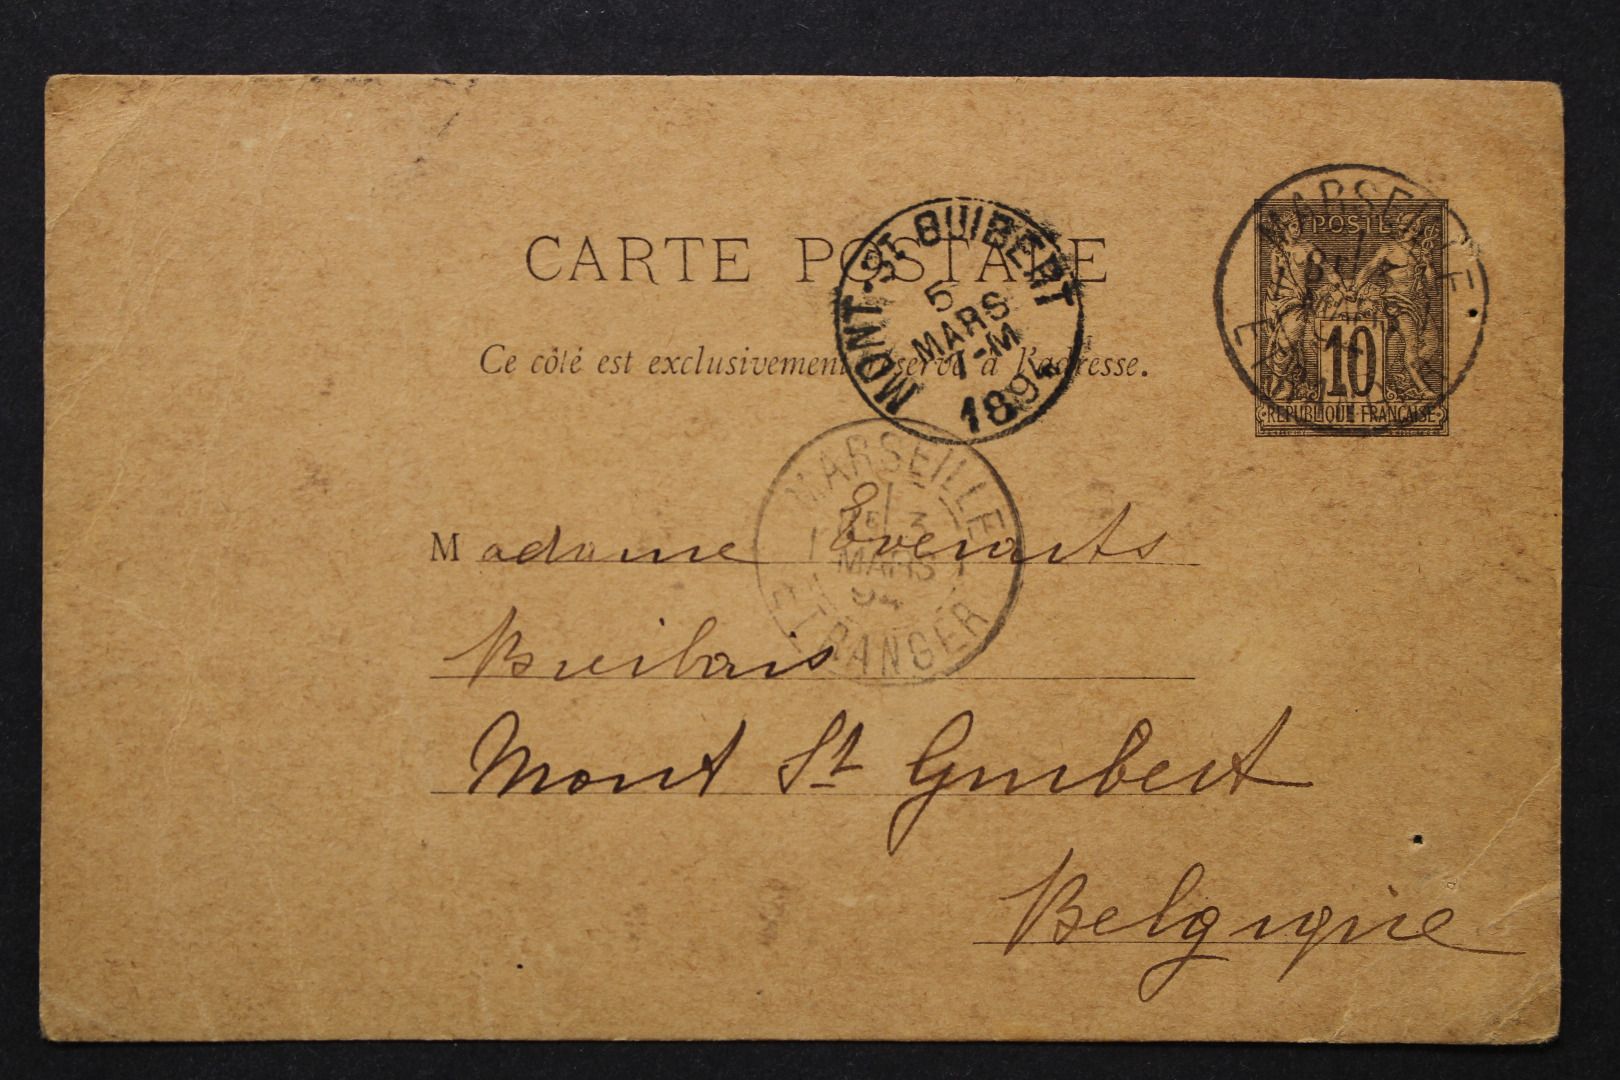 CARTE POSTALE
Ce côté est exclusivement réservé à l'adresse.
MONT-ST GUIBERT
5
MARS
7-M
189
POSTE
10
REPUBLIQUE FRANÇAISE
MARSEILLE
MARSEILLE
3
MARS
94
ETRANGER
Madame Everarts
Mont St Guibert
Belgique